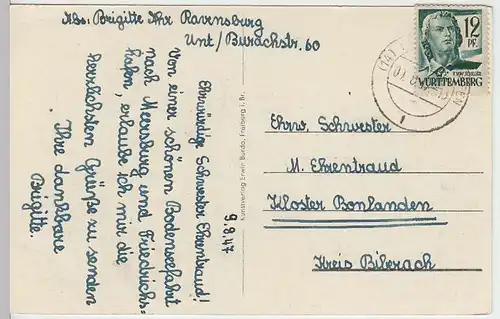 Abs: Brigitte Ihr Ravensburg
Unt/Burachstr. 60
9.8.47
Ehrwürdige Schwester Ehrentraud!
Von einer schönen Bodenseefahrt
nach Meersburg und Friedrichs=
hafen, erlaube ich mir die
herrlichsten Grüße zu senden
Ihre dankbare
Brigitte.
Kunstverlag Erwin Burda, Freiburg i. Br.
12
PF
WÜRTTEMBERG
Ehrw. Schwester
M. Ehrentraud
Kloster Bonlanden
Kreis Biberach